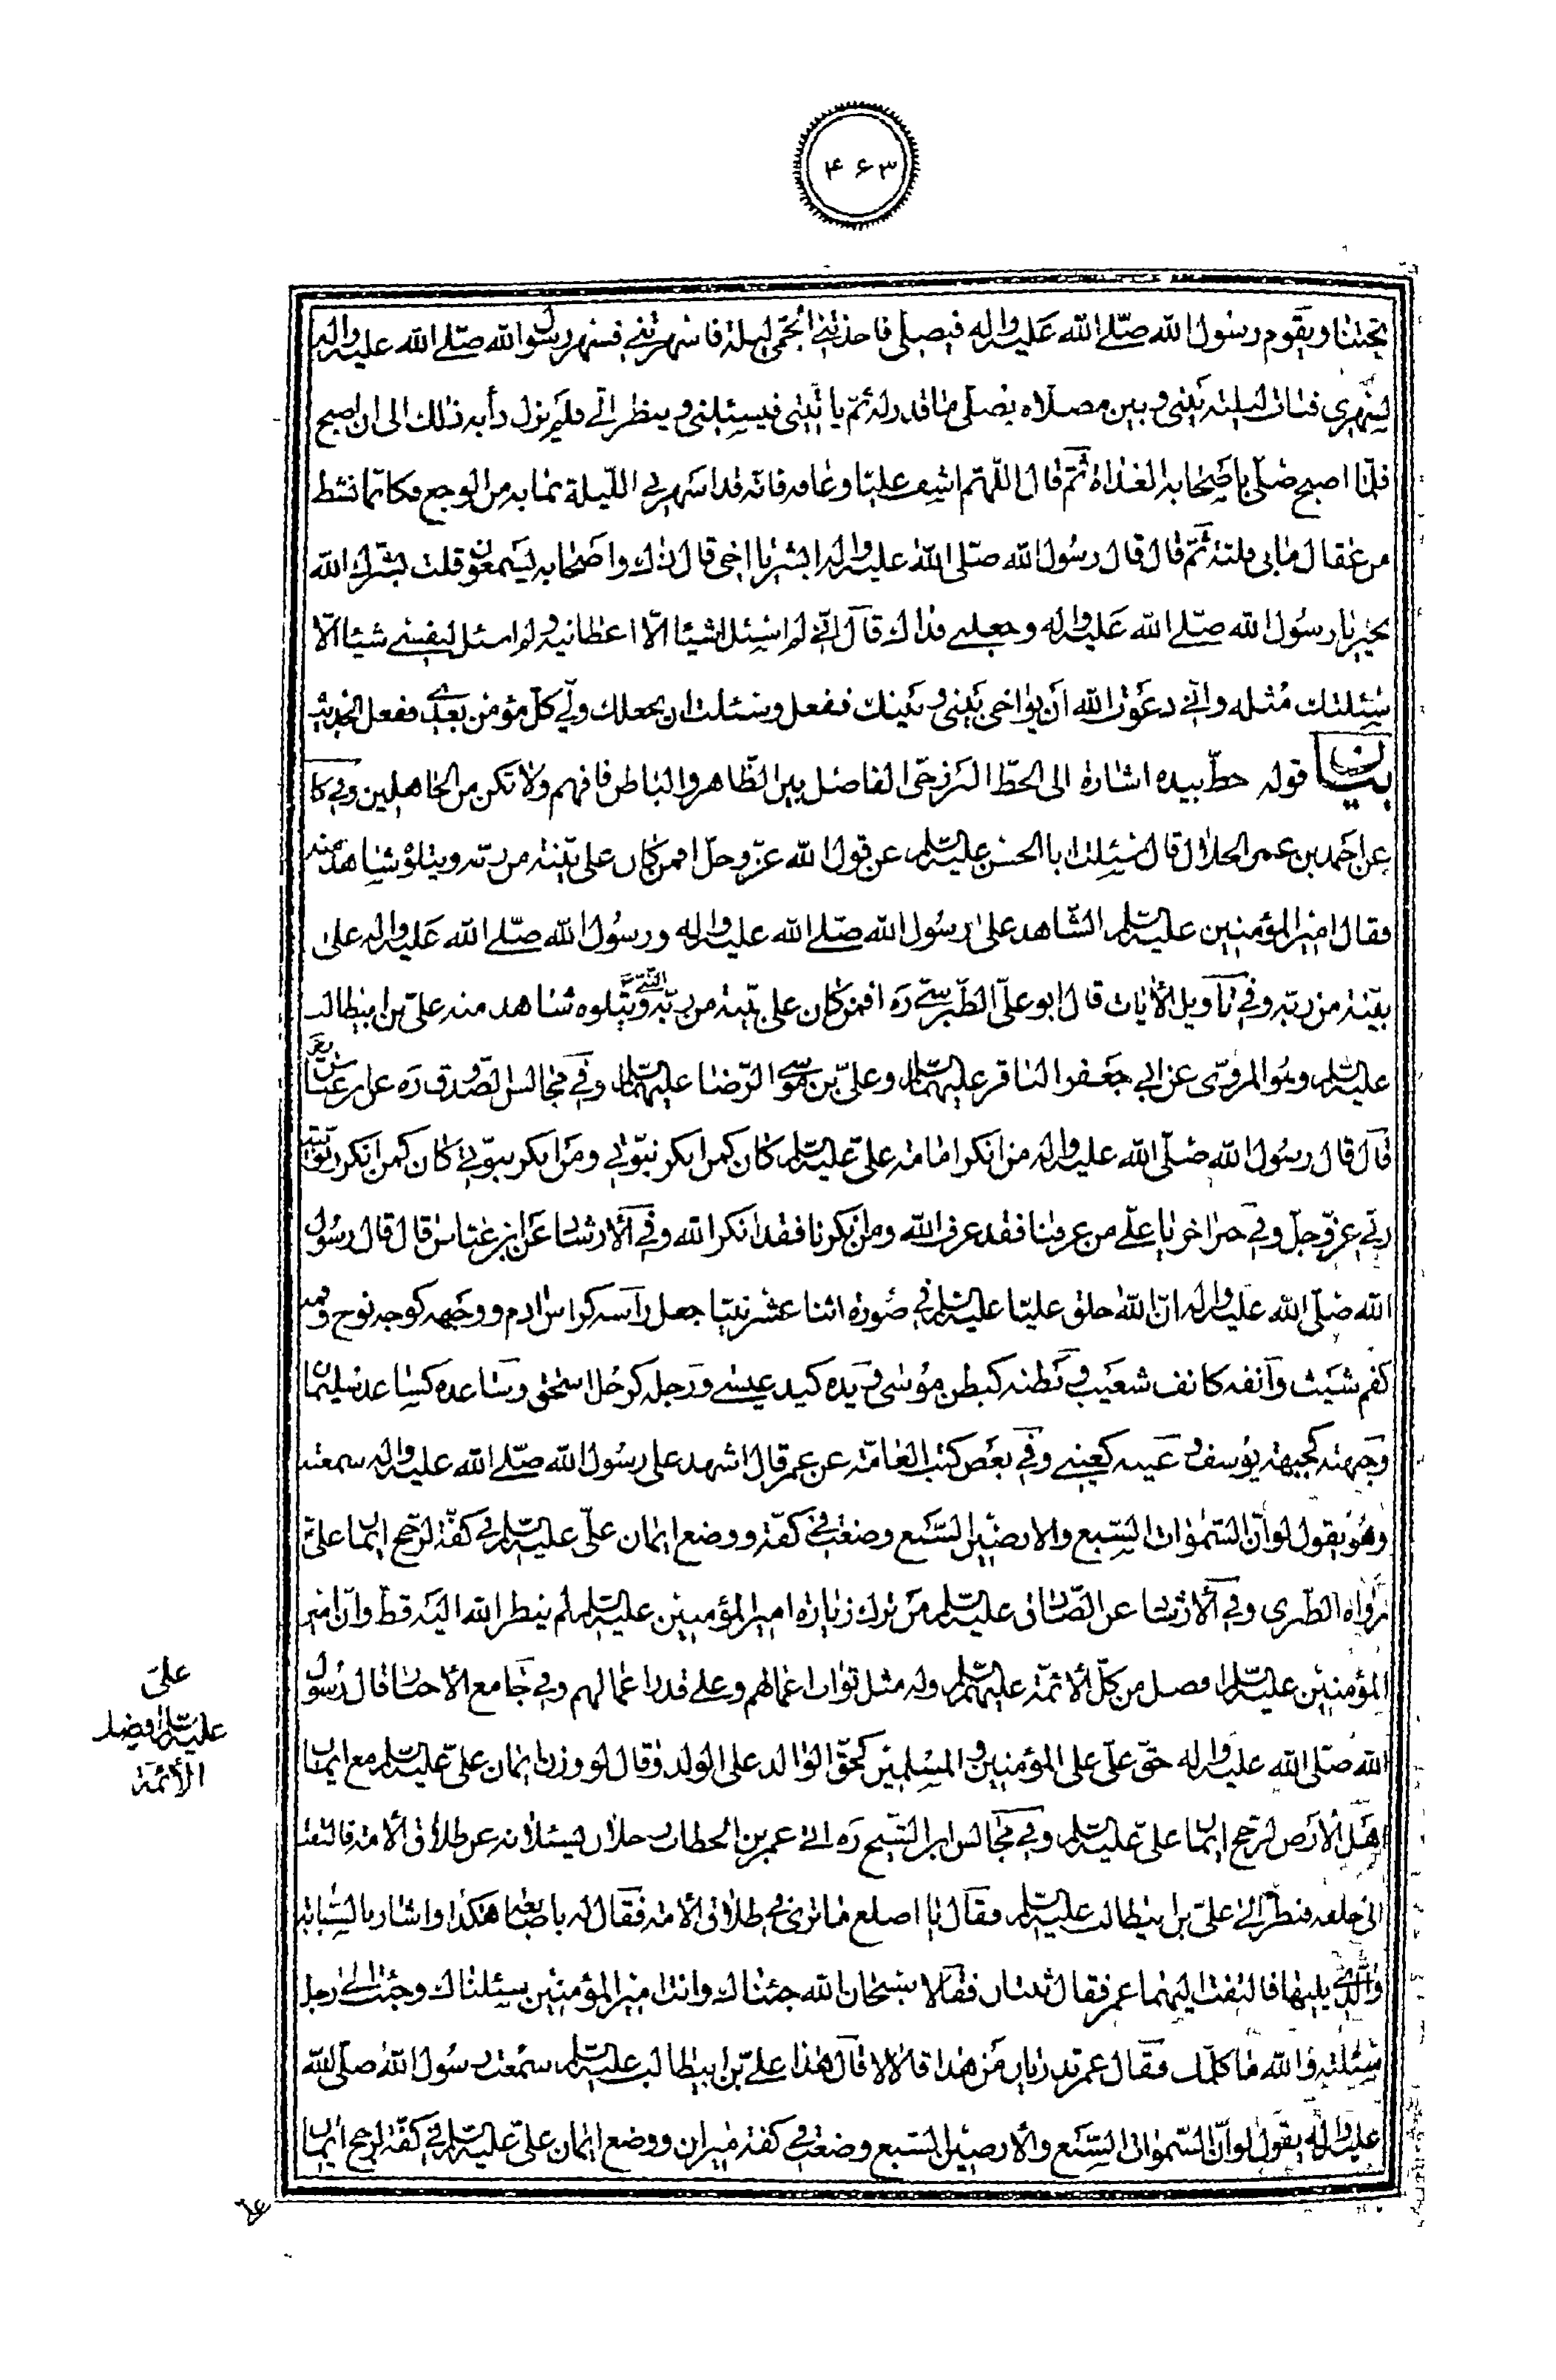 ۴۶۳
تحتنا ويقوم رسول الله صلّى الله عليه واله فيصلي فاخذتني الحمّى ليلة فاسهرتني فسهر رسول الله صلّى الله عليه واله
لسهري فبات ليلته بيني وبين مصلاه يصلّي ما قدر له ثمّ ياتيني فيسئلني وينظر الّي فلم يزل دأبه ذلك الى ان اصبح
فلمّا اصبح صلّى باصحابه الغداة ثمّ قال اللّهمّ اشف عليّا وعافه فانه قد اسهرني اللّيلة ممّا به من الوجع فكانّما نشط
من عقال ما بي قلبة ثمّ قال قال رسول الله صلّى الله عليه واله ابشر يا اخي قال ذلك واصحابه يسمعون قلت بشّرك الله
بخير يا رسول الله صلّى الله عليه واله وجعلني فداك قال انّي لم اسئل الله شيئا الّا اعطانيه ولم اسئل لنفسي شيئا الّا
سئلت لك مثله وانّي دعوت الله ان يواخي بيني وبينك ففعل وسئلت ان يجعلك وليّ كلّ مؤمن بعدي ففعل الحديث
بيان قوله خطّ بيده اشارة الى الخطّ البرزخي الفاصل بين الظّاهر والباطن فافهم ولا تكن من الجاهلين وفي كا
عن احمد بن عمر الحلال قال سئلت ابا الحسن عليه السّلم عن قول الله عزّ وجلّ افمن كان على بيّنة من ربّه ويتلوه شاهد منه
فقال امير المؤمنين عليه السّلم الشّاهد على رسول الله صلّى الله عليه واله ورسول الله صلّى الله عليه واله على
بيّنة من ربّه وفي تأويل الأيات قال ابو علّي الطّبرسيّ ره افمن كان على بيّنة من ربّه النّبيّ ويتلوه شاهد منه عليّ بن ابيطالب
عليه السّلم وهو المرويّ عن ابي جعفر الباقر عليهما السّلم وعليّ بن موسى الرّضا عليهما السّلم وفي مجالس الصّدوق ره عن ابن عبّاس
قال قال رسول الله صلّى الله عليه واله من انكر امامة عليّ عليه السّلم كان كمن انكر نبوّتي ومن انكر نبوّتي كان كمن انكر ربوبيّة
ربّي عزّ وجلّ وفي خبر اخر يا علي من عرفنا فقد عرف الله ومن انكرنا فقد انكر الله وفي الارشاد عن ابن عبّاس قال قال رسول
الله صلّى الله عليه واله انّ الله خلق عليّا عليه السّلم في صورة اثنا عشر نبيّا جعل رأسه كراس ادم ووجهه كوجه نوح وفمه
كفم شيث وانفه كانف شعيب وبطنه كبطن موسى ويده كيد عيسى ورجله كرجل اسحق وساعده كساعد سليمان
وجبهته كجبهة يوسف و عينيه كعيني وفي بعض كتب العامّة عن عمر قال اشهد على رسول الله صلّى الله عليه واله سمعته
وهو يقول لو انّ السّموات السّبع والارضين السّبع وضعت في كفّة ووضع ايمان عليّ عليه السّلم في كفّة لرجّح ايمان عليّ
رواه الطّبري وفي الارشاد عن الصّادق عليه السّلم من ترك زيارة امير المؤمنين عليه السّلم لم ينظر الله اليه قطّ وانّ امير
المؤمنين عليه السّلم افضل من كلّ الأئمّة عليهم السّلم وله مثل ثواب اعمالهم وعلى قدر اعمالهم وفي جامع الأخبار قال رسول
الله صلّى الله عليه واله حقّ علّي على المؤمنين و المسلمين كحقّ الوالد على الولد وقال لو وزن ايمان عليّ عليه السّلم مع ايمان
اهل الأرض لرجّح ايمان عليّ عليه السّلم وفي مجالس ابن الشّيخ ره اتى عمر بن الخطاب رجلان يسئلانه عن طلاق الأمة فالتفت
الى خلفه فنظر الى عليّ بن ابيطالب عليه السّلم فقال يا اصلع ما ترى في طلاق الأمة فقال له باصابعه هكذا واشار بالسّبابة
والّتي يليها فالتفت اليهما عمر فقال ثنتان فقالا سبحان الله جئناك وانت امير المؤمنين سئلناك وجئت الى رجل
سئلته والله ما كلّمك فقال عمر تدريان من هذا قالا لا قال هذا علي بن ابيطالب عليه السّلم سمعت رسول الله صلّى الله
عليه واله يقول لو انّ السّموات السّبع والأرضين السّبع وضعت في كفة ميزان ووضع ايمان عليّ عليه السّلم في كفّة لرجح ايمان
عليّ
عليه السّلم افضل
الأئمّة